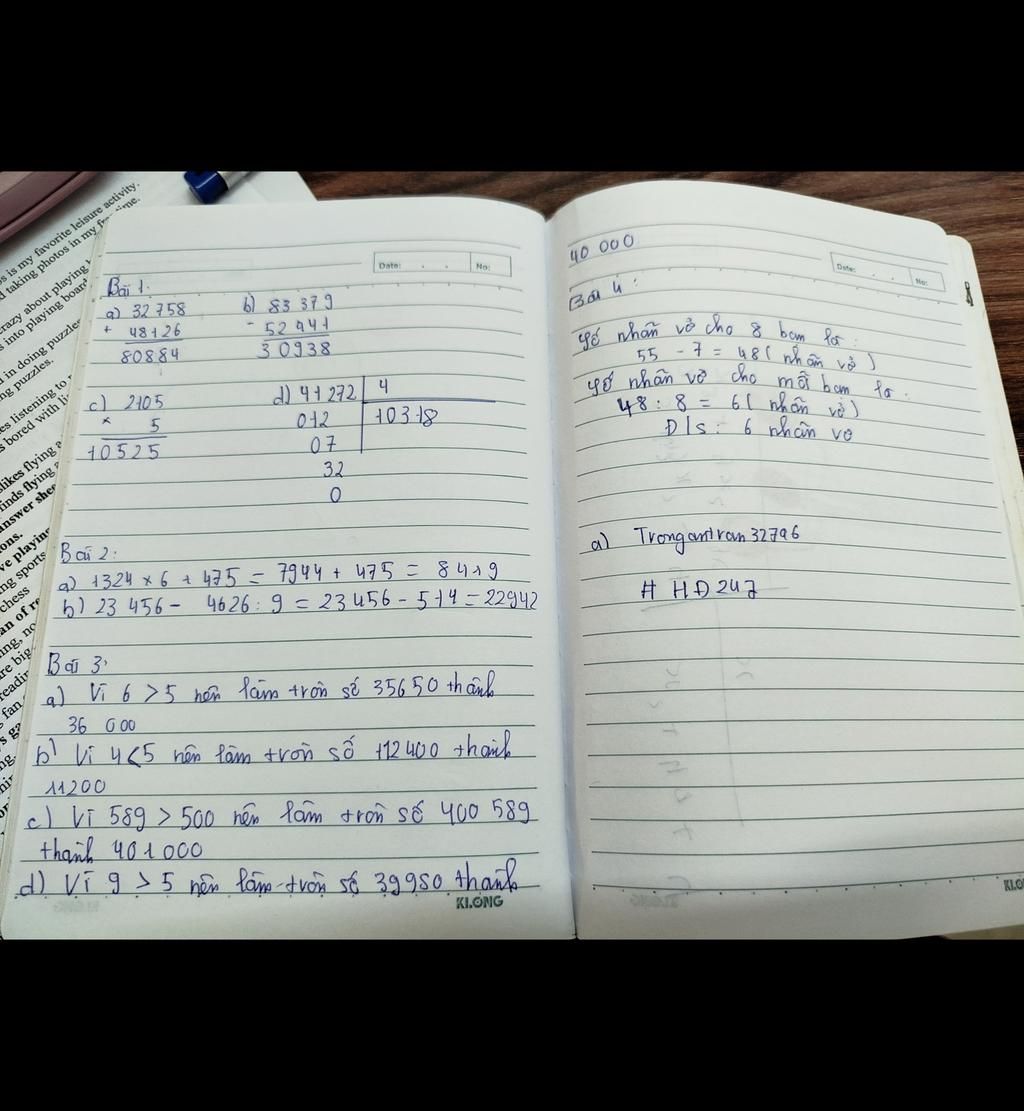 s is my favorite leisure activity.
d taking photos in my
crazy about playing
s into playing board
d in doing puzzles
ng puzzles.
es listening to
s bored with
likes flying a
finds flying
answer shee
ons.
ve playing
ng sports
chess
an of re
ng, no
re big
readin
fan
Date: . . No:
Bài 1:
a) 32 758 b) 83 379
+ 48126 - 52 441
80884 30938
c) 2105 d) 41 272 4
× 5 012 10318
10525 07
32
0
Bài 2:
a) 1324 × 6 + 475 = 7944 + 475 = 8419
b) 23 456 - 4626 : 9 = 23 456 - 514 = 22942
Bài 3:
a) Vì 6 > 5 nên làm tròn số 35650 thành
36 000
b) Vì 4 < 5 nên làm tròn số 112400 thành
11200
c) Vì 589 > 500 nên làm tròn số 400 589
thành 401 000
d) Vì 9 > 5 nên làm tròn số 39950 thành
KLONG
Date: . . No:
40 000
Bài 4:
Số nhãn vở cho 8 bạn là:
55 - 7 = 48 ( nhãn vở )
Số nhãn vở cho mỗi bạn là:
48 : 8 = 6 ( nhãn vở )
Đ/S: 6 nhãn vở
a) Trongantran32796
# HĐ247